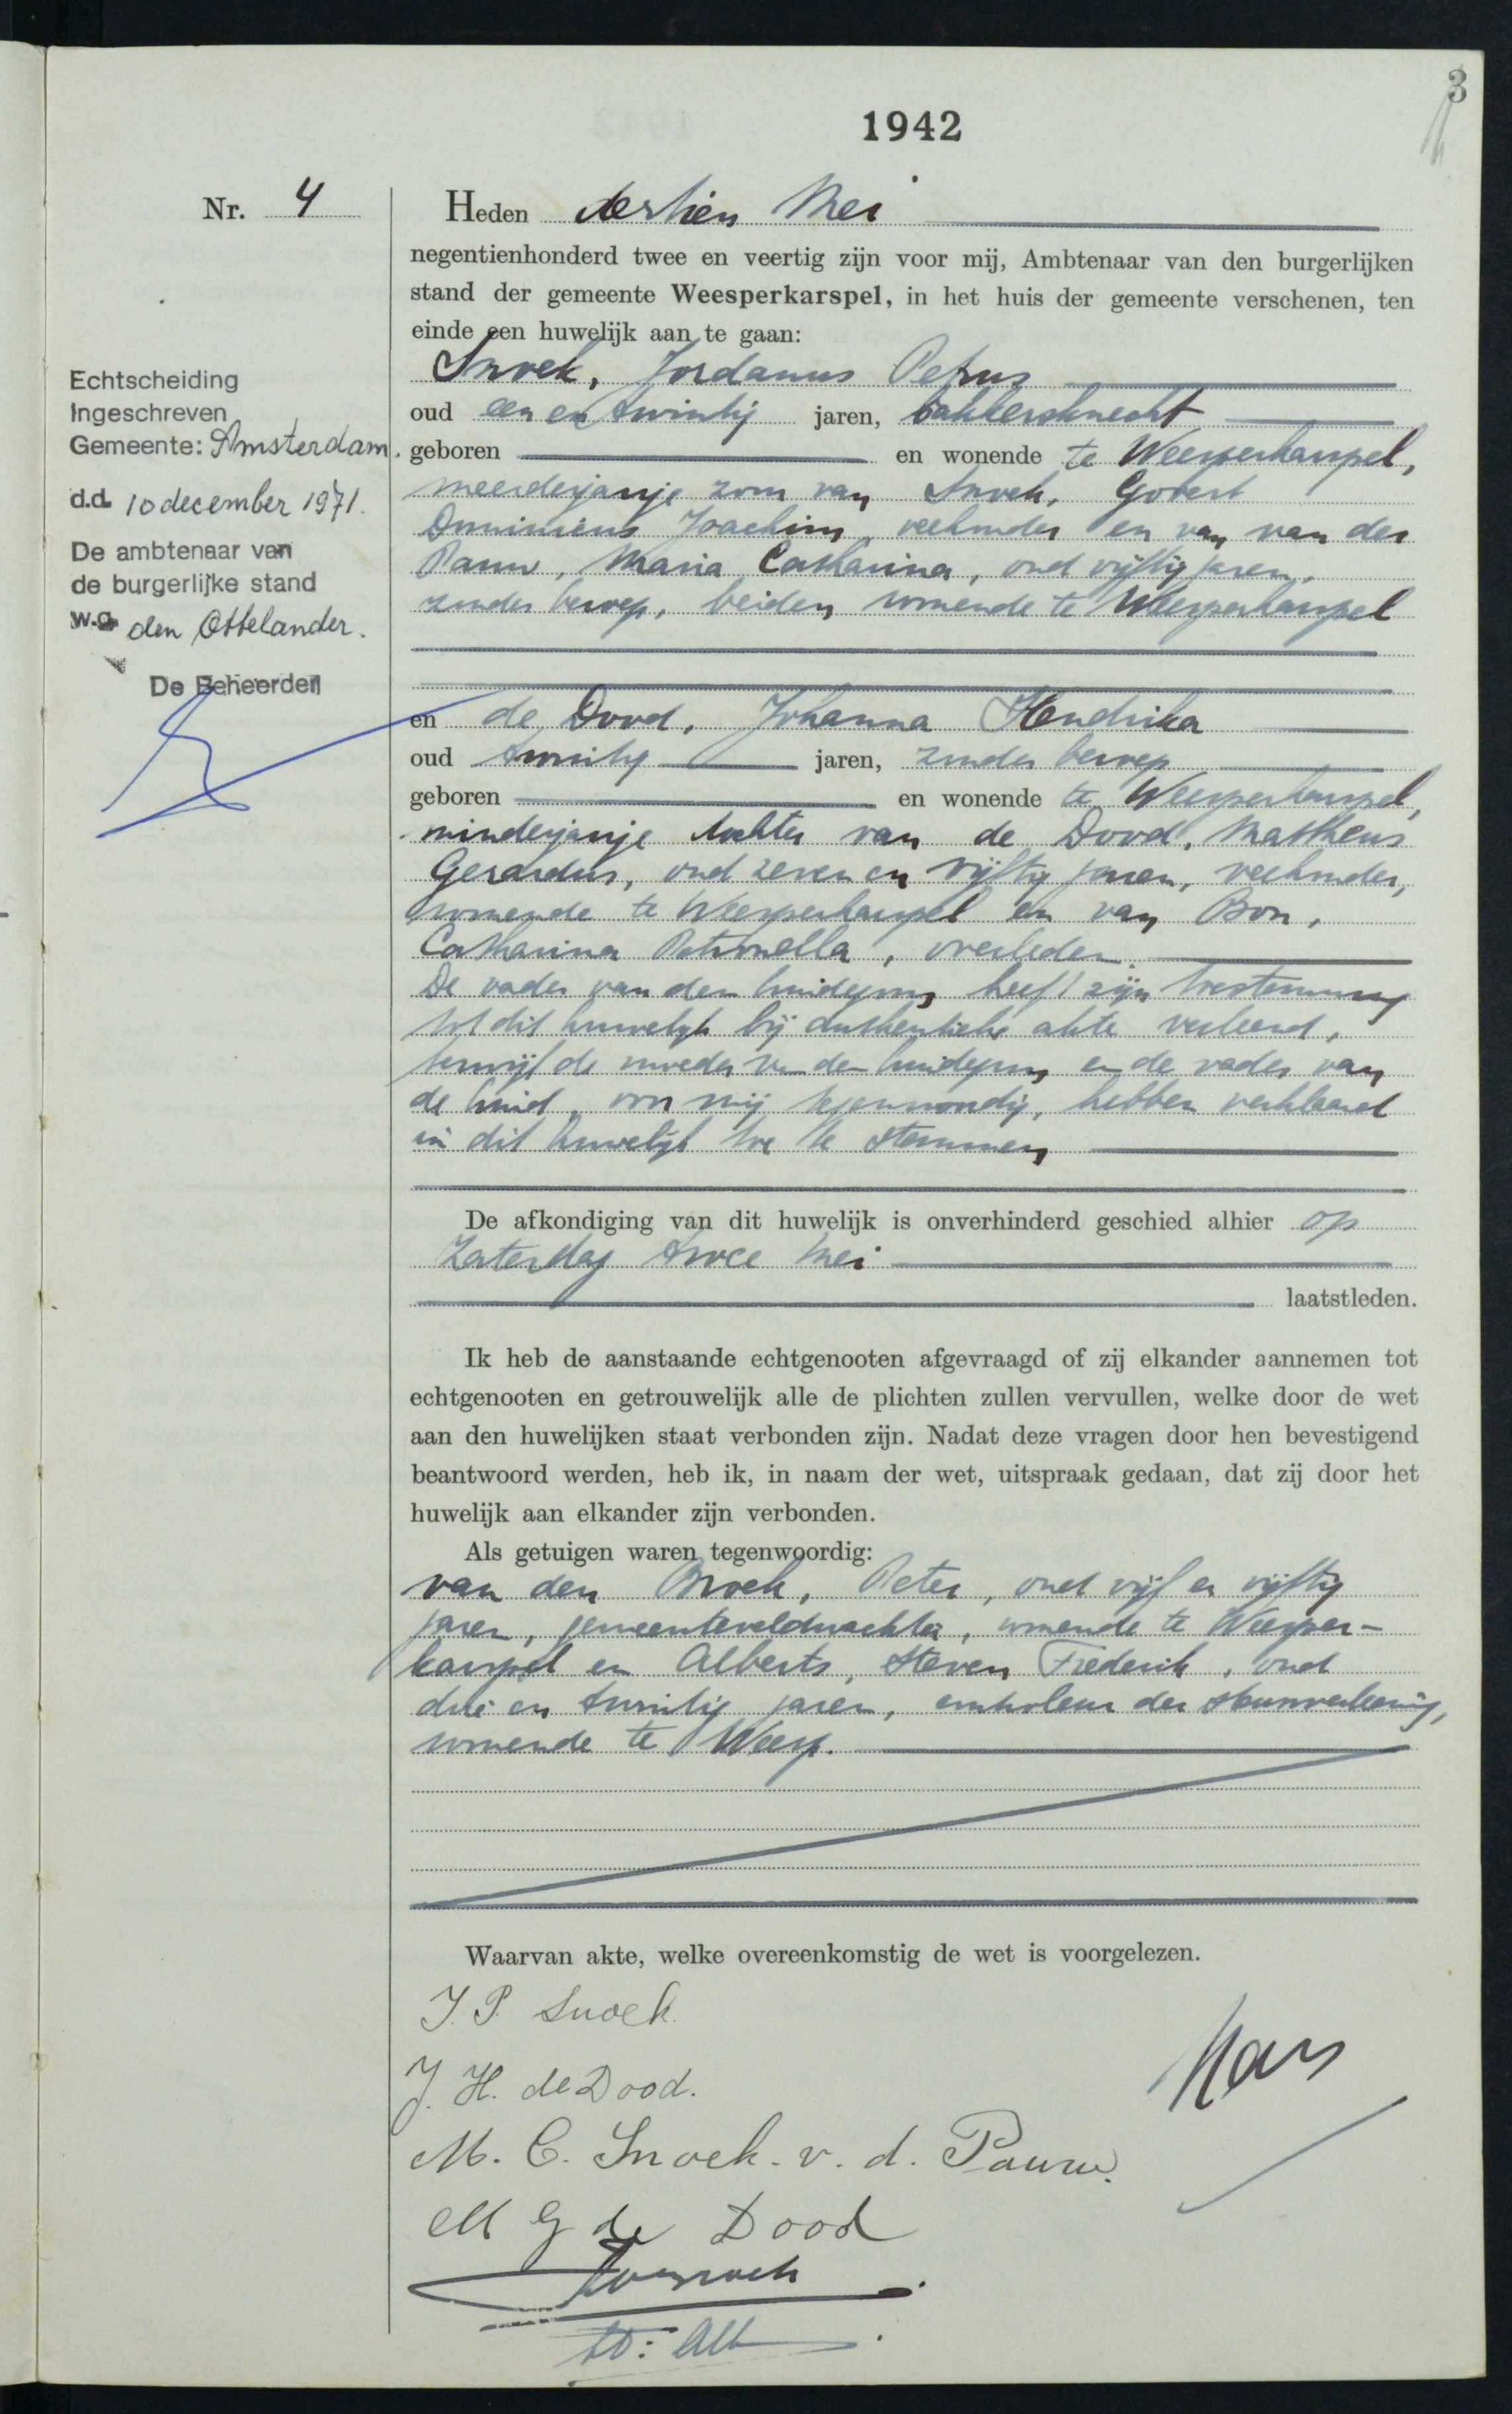 3
1942
Nr. 4
Heden dertien Mei
negentienhonderd twee en veertig zijn voor mij, Ambtenaar van den burgerlijken
stand der gemeente Weesperkarspel, in het huis der gemeente verschenen, ten
einde een huwelijk aan te gaan:
Snoek, Jordanus Petrus
oud een en twintig jaren, bakkersknecht
geboren en wonende te Weesperkarspel,
meerderjarige zoon van Snoek, Gobert
Dominicus Joachim, veehouder en van van der
Pauw, Maria Catharina, oud vijftig jaren,
zonder beroep, beiden wonende te Weesperkarspel
en de Dood, Johanna Hendrika
oud twintig jaren, zonder beroep
geboren en wonende te Weesperkarspel,
minderjarige dochter van de Dood, Mattheus
Gerardus, oud zeven en vijftig jaren, veehouder,
wonende te Weesperkarspel en van Bon,
Catharina Petronella, overleden.
De vader van den bruidegom heeft zijn toestemming
tot dit huwelijk bij authentieke akte verleend,
terwijl de moeder van den bruidegom en de vader van
de bruid, voor mij tegenwoordig, hebben verklaard
in dit huwelijk toe te stemmen
De afkondiging van dit huwelijk is onverhinderd geschied alhier op
Zaterdag twee Mei
laatstleden.
Ik heb de aanstaande echtgenooten afgevraagd of zij elkander aannemen tot
echtgenooten en getrouwelijk alle de plichten zullen vervullen, welke door de wet
aan den huwelijken staat verbonden zijn. Nadat deze vragen door hen bevestigend
beantwoord werden, heb ik, in naam der wet, uitspraak gedaan, dat zij door het
huwelijk aan elkander zijn verbonden.
Als getuigen waren tegenwoordig:
van den Broek, Peter, oud vijf en vijftig
jaren, gemeenteveldwachter, wonende te Weesper-
karspel en Alberts, Steven Frederik, oud
drie en twintig jaren, controleur der steunverleening,
wonende te Weesp.
Waarvan akte, welke overeenkomstig de wet is voorgelezen.
J. P. Snoek.
J. H. de Dood.
M. C. Snoek. v. d. Pauw.
M G de Dood
Echtscheiding
Ingeschreven
Gemeente: Amsterdam.
d.d. 10 december 1971.
De ambtenaar van
de burgerlijke stand
w.g. den Ottelander.
De Beheerder